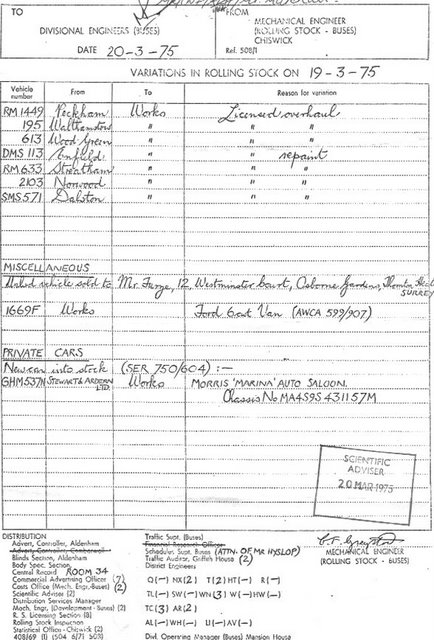 TO
DIVISIONAL ENGINEERS (BUSES)
DATE 20-3-75
FROM
MECHANICAL ENGINEER
(ROLLING STOCK - BUSES)
CHISWICK
Ref. 508/1
VARIATIONS IN ROLLING STOCK ON 19-3-75
Vehicle number From To Reason for variation
RM 1449 Peckham Works Licensed overhaul
195 Walthamstow " " "
613 Wood Green " " "
DMS 113 Enfield " " repaint
RM 633 Streatham " " "
2103 Norwood " " "
SMS 571 Dalston " " "
MISCELLANEOUS
vehicle sold to Mr. 12, Westminster Court, Osborne Gardens, Thornton Heath
SURREY
1669F Works Ford Van (AWCA 599/907)
PRIVATE CARS
New car into stock (SER 750/604) :—
GHM 537N STEWART & ARDERN LTD. Works MORRIS 'MARINA' AUTO SALOON.
Chassis No MA4S9S 431157M
SCIENTIFIC
ADVISER
20 MAR 1975
MECHANICAL ENGINEER
(ROLLING STOCK - BUSES)
DISTRIBUTION
Advert. Controller, Aldenham
Advert. Controller, Camberwell
Blinds Section, Aldenham
Body Spec. Section
Central Record ROOM 34
Commercial Advertising Officer (7)
Costs Office (Mech. Engr.-Buses) (2)
Scientific Adviser (2)
Distribution Services Manager
Mech. Engr. (Development - Buses) (2)
R. S. Licensing Section (8)
Rolling Stock Inspection
Statistical Office - Chiswick (2)
408/69 (1) (504 6/71 508)
Traffic Supt. (Buses)
Financial Research Officer
Schedules Supt. Buses (ATTN. OF MR HYSLOP)
Traffic Auditor, Griffith House (2)
District Engineers
Q (—) NX (2) T (2) HT (—) R (—)
TL (—) SW (—) WN (3) W (—) HW (—)
TC (3) AR (2)
AL (—) WH (—) U (—) AV (—)
Divl. Operating Manager (Buses) Mansion House